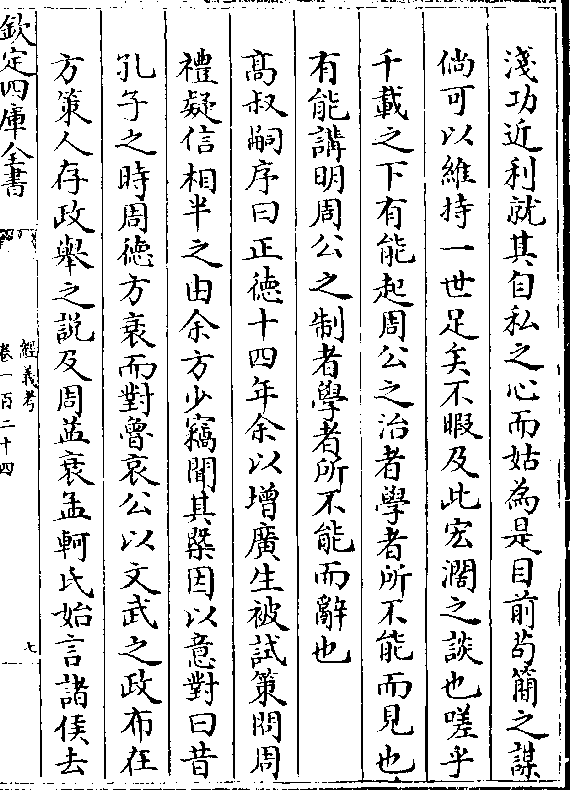 淺功近利就其自私之心而姑為是目前苟簡之謀
倘可以維持一世足矣不暇及此宏濶之談也嗟乎
千載之下有能起周公之治者學者所不能而見也
有能講明周公之制者學者所不能而辭也
髙叔嗣序曰正徳十四年余以增廣生被試策問周
禮疑信相半之由余方少竊聞其槩因以意對曰昔
孔子之時周徳方衰而對魯哀公以文武之政布在
方策人存政舉之説及周益衰孟軻氏始言諸侯去
欽定四庫全書
經義考
卷一百二十四
七